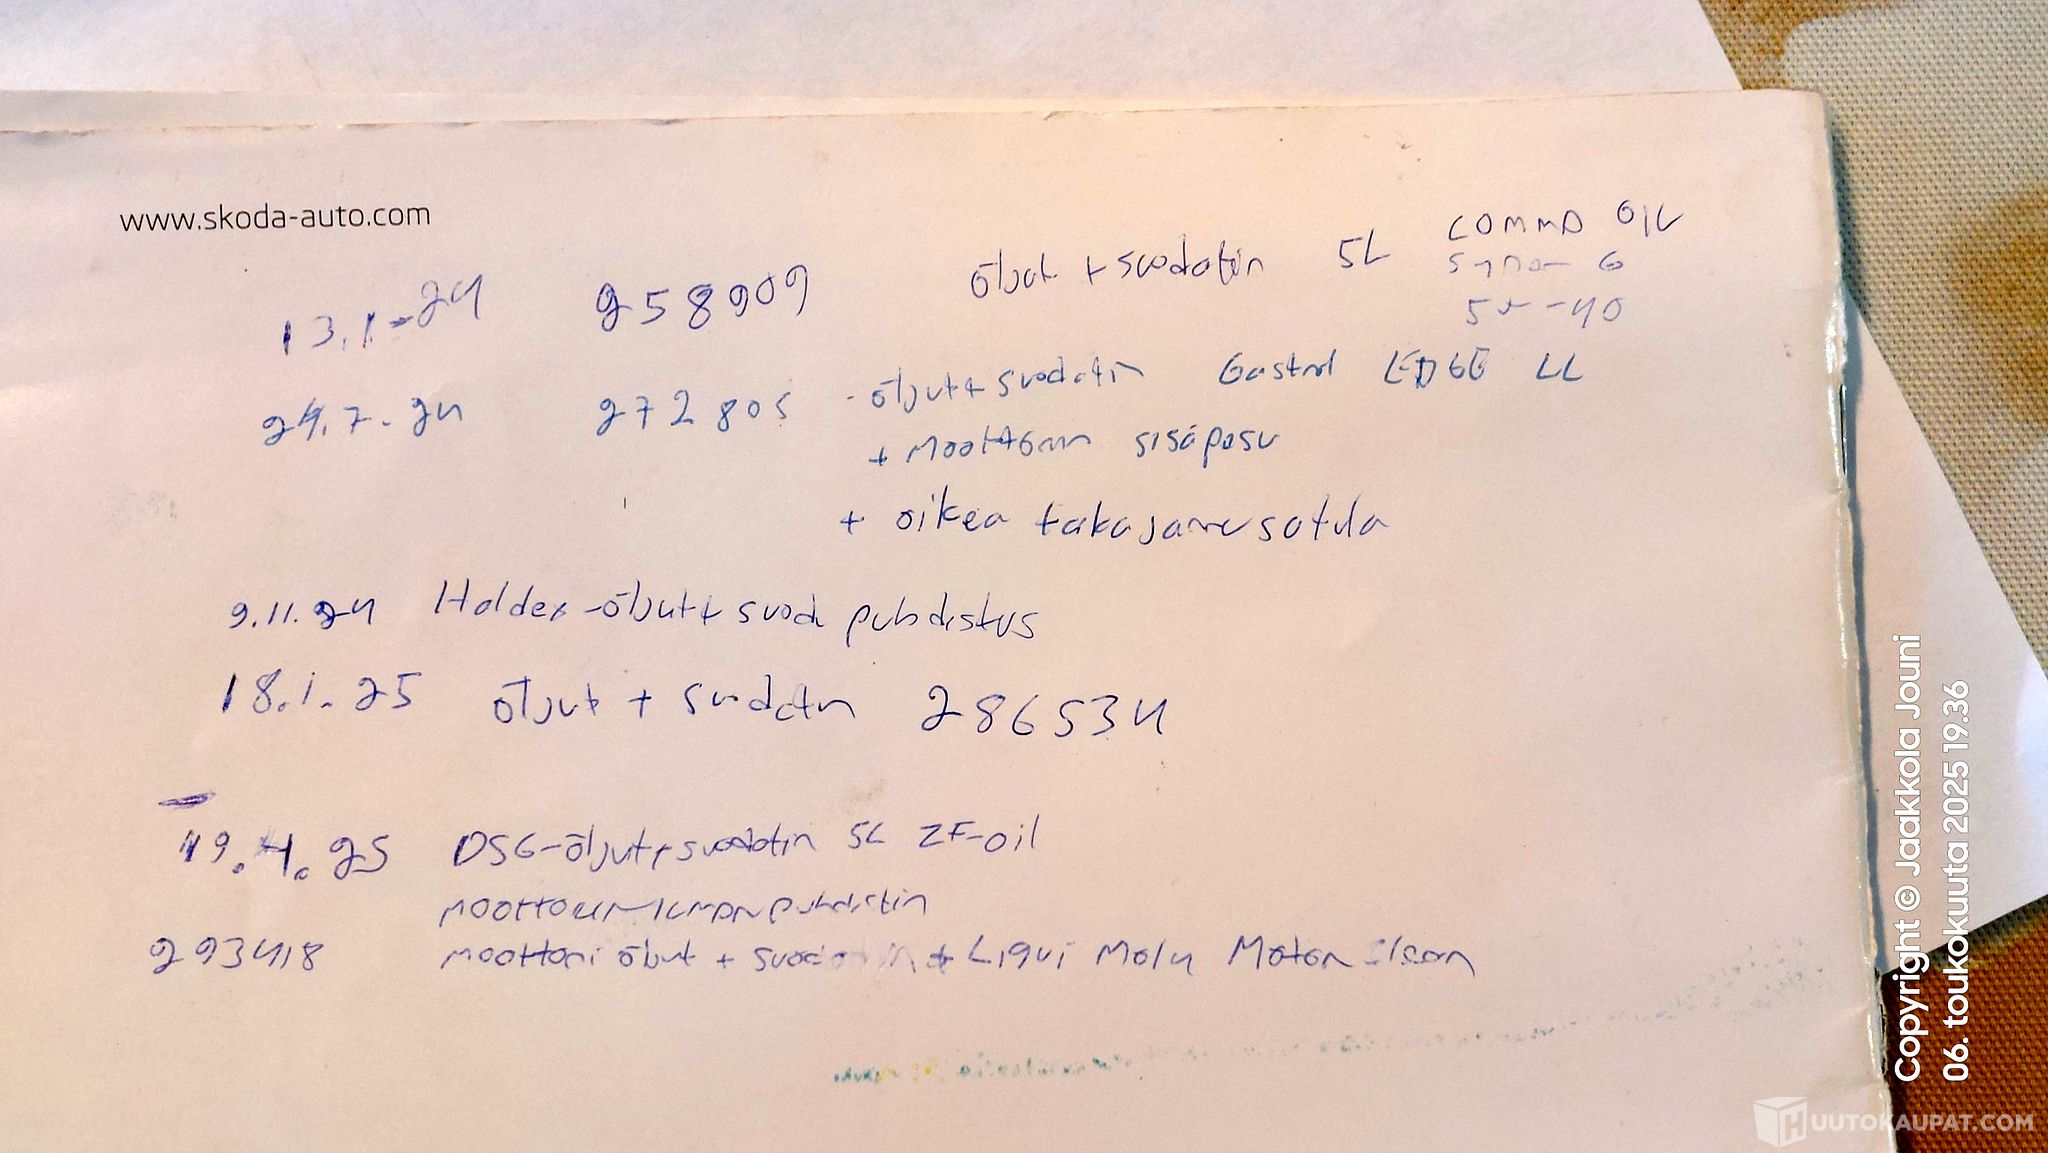 www.skoda-auto.com
13.1-24 258909 öljyt + suodatin 5L COMMA OIL
5L-40
24.7.24 272805 - öljyt + suodatin Castrol EDGE LL
+ moottorin sisäpesu
+ oikea takajarrusatula
9.11.24 Haldex-öljyt + suod. puhdistus
18.1.25 öljyt + suodatin 286534
19.4.25 DSG-öljyt + suodatin 5L ZF-oil
293418 moottori öljyt + suodatin + Liqui Moly Motor Clean
Copyright © Jaakkola Jouni
06. toukokuuta 2025 19.36
HUUTOKAUPAT.COM